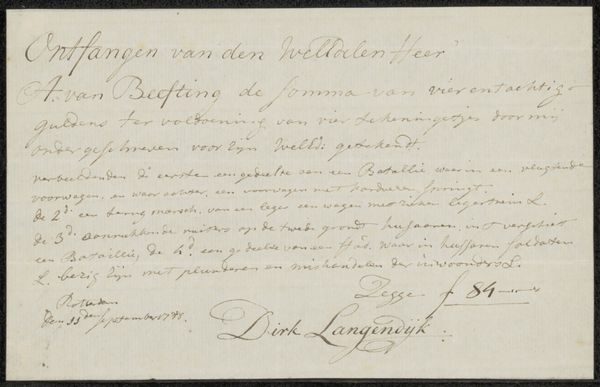 Ontfangen van den WelEdelen Heer
A. van Beefting de somma van vier entachtig
guldens ter voldoening van vier tekeningetjes door mij
ondergeschreven voor zyn WelEd: getekendt.
verbeeldende de eersten een gedeelte van een Batallie waer in een vlugtende
voorwagen, en waar achter een voorwagen met kardoezen springt.
de 2d. een terug marsch, van een leger een wagen met zieken legertrein &.
de 3d. aanrukkende ruiters op de twede grondt husaaren, in't verschiet
een Batallie, de 4d. een gedeelte van een stad. waar in hussaren soldaten
&. bezig zyn met plunderen en mishandelen der inwoonders &.
Zegge f 84
Rotterdam
den September
Dirk Langendyk.